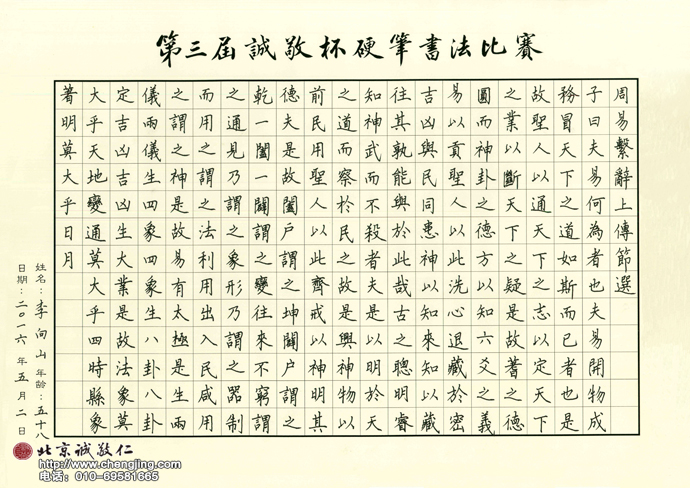 第三屆誠敬杯硬筆書法比賽
周易繫辭上傳節選
子曰夫易何為者也夫易開物成
務冒天下之道如斯而已者也是
故聖人以通天下之志以定天下
之業以斷天下之疑是故蓍之德
圓而神卦之德方以知六爻之義
易以貢聖人以此洗心退藏於密
吉凶與民同患神以知來知以藏
往其孰能與於此哉古之聰明睿
知神武而不殺者夫是以明於天
之道而察於民之故是興神物以
前民用聖人以此齊戒以神明其
德夫是故闔戶謂之坤闢戶謂之
乾一闔一闢謂之變往來不窮謂
之通見乃謂之象形乃謂之器制
而用之謂之法利用出入民咸用
之謂之神是故易有太極是生兩
儀兩儀生四象四象生八卦八卦
定吉凶吉凶生大業是故法象莫
大乎天地變通莫大乎四時縣象
著明莫大乎日月
姓名：李向山 年齡：五十八
日期：二〇一六年五月二日
北京誠敬仁
http://www.chengjing.com
电话：010-89581665